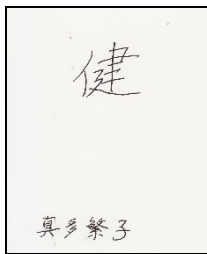 健
真多繁子